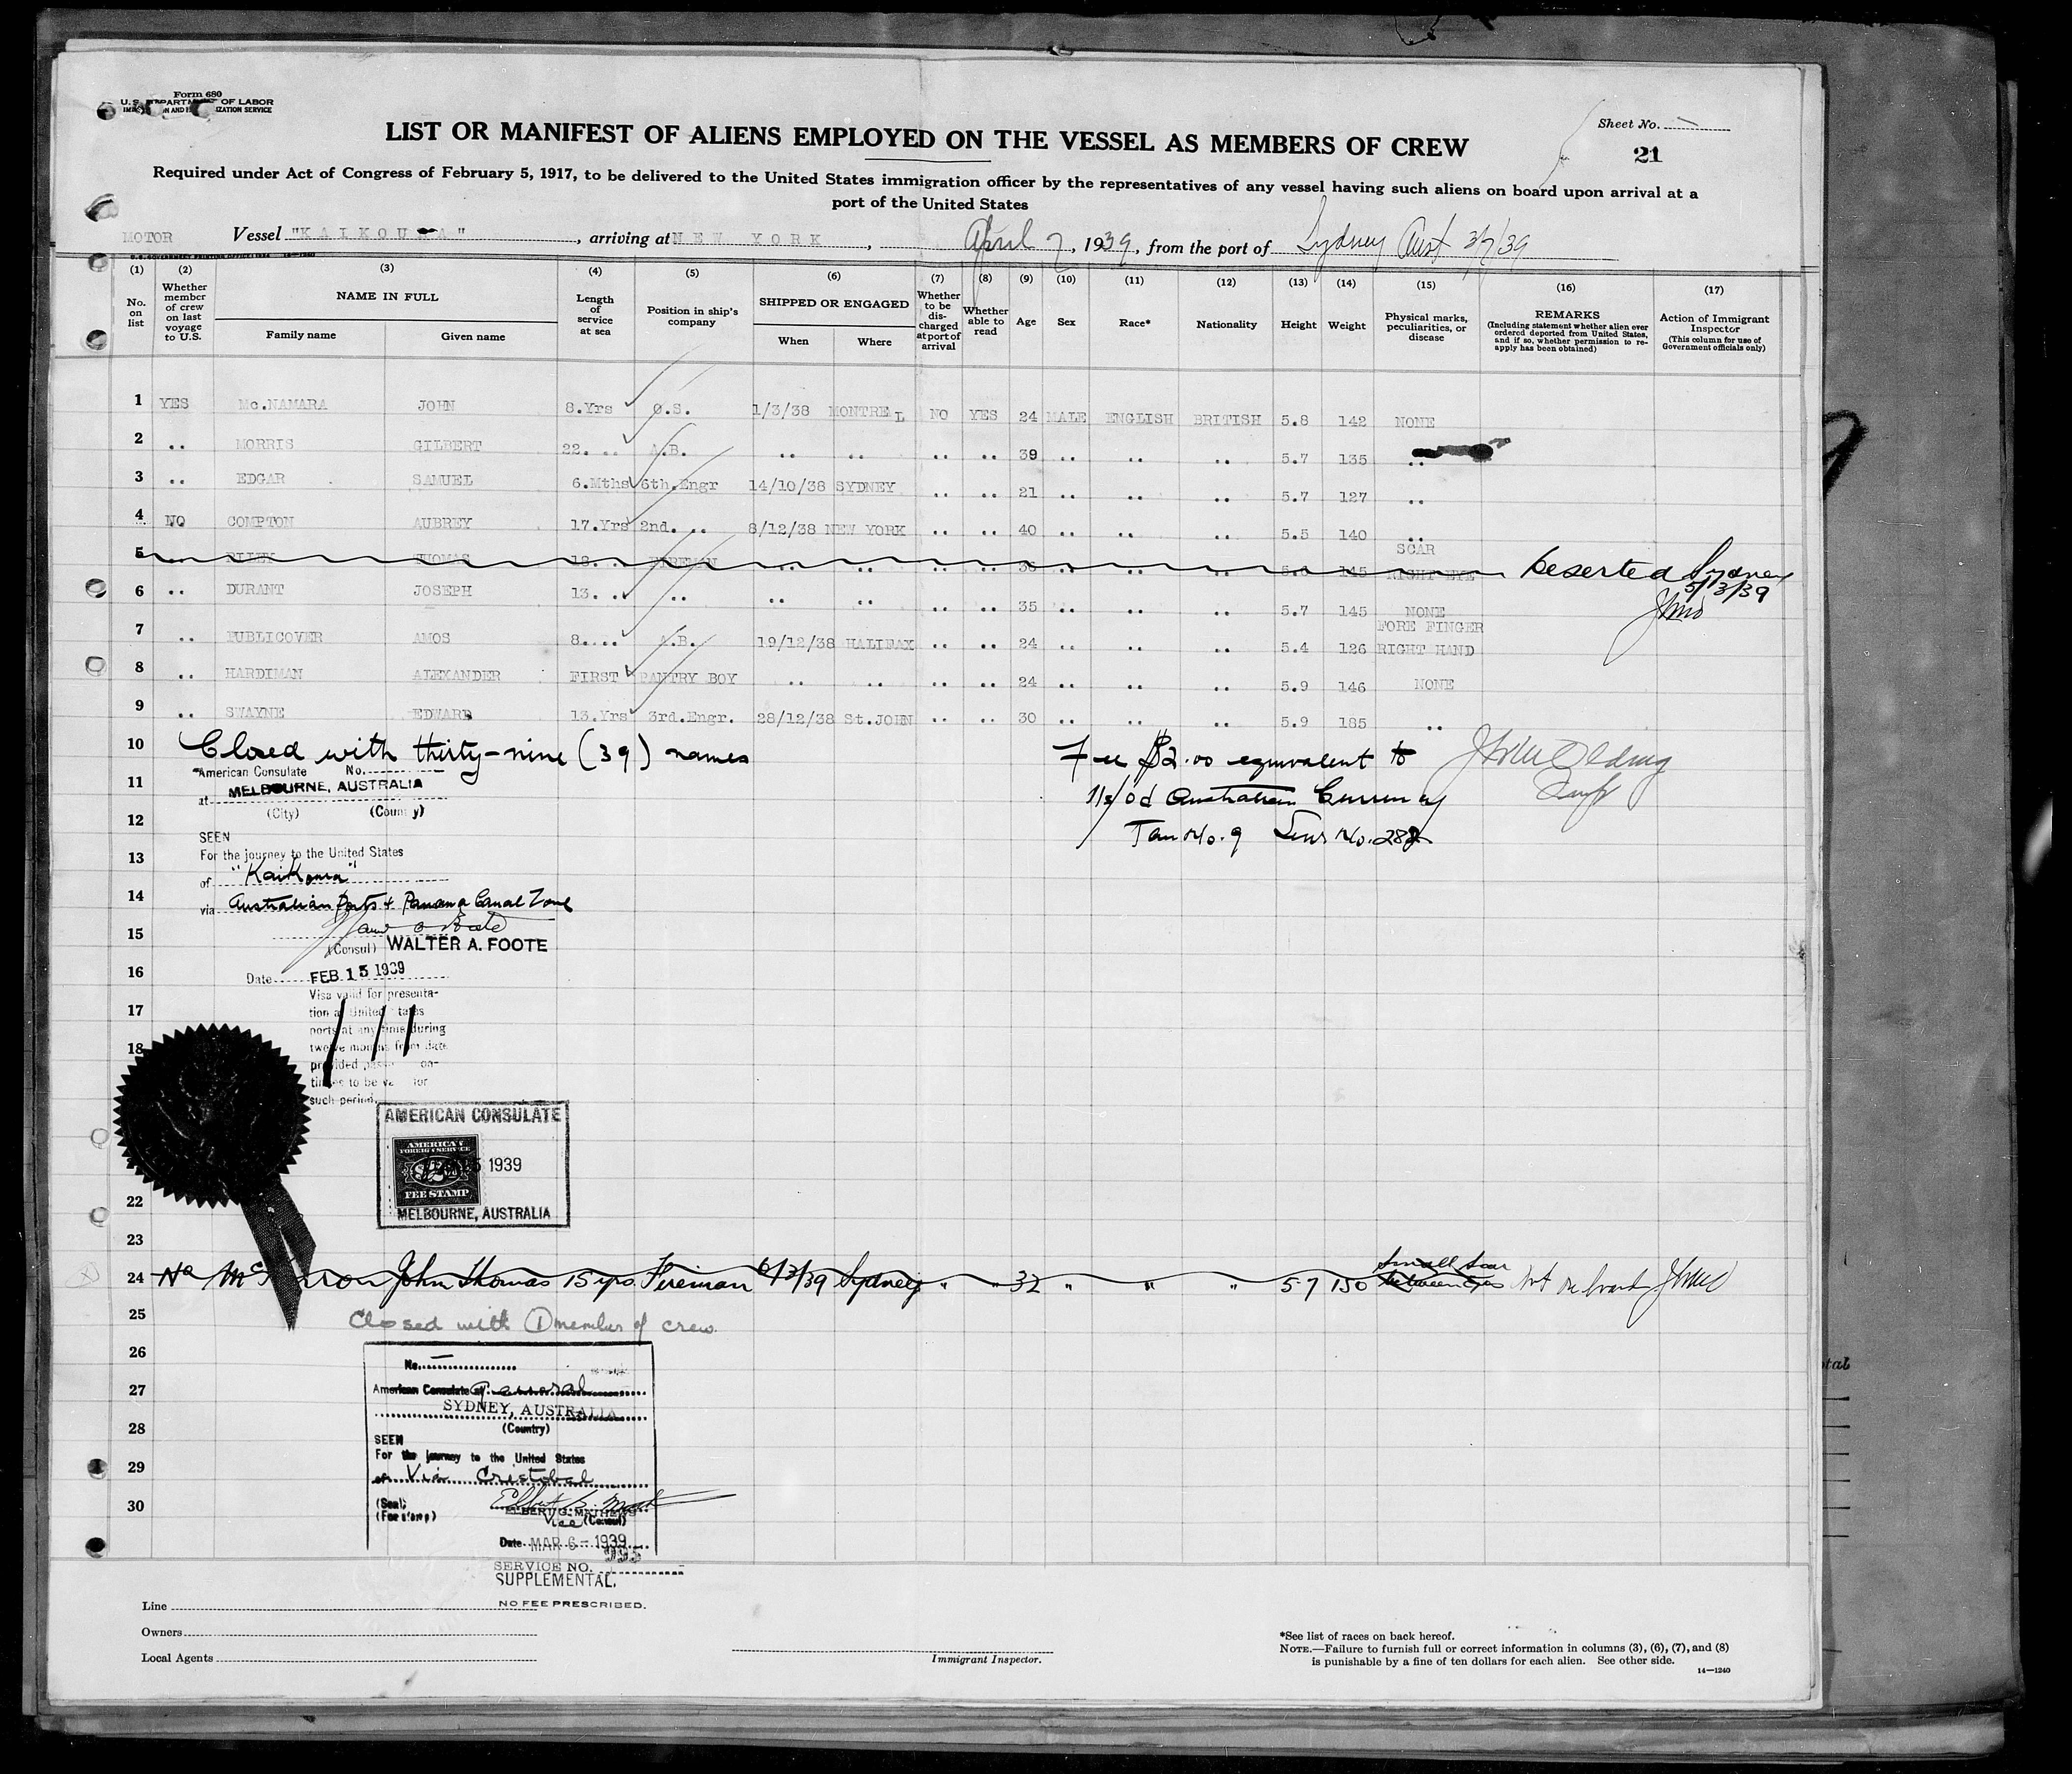 Form 680
U. S. DEPARTMENT OF LABOR
IMMIGRATION AND NATURALIZATION SERVICE
Sheet No.
21
LIST OR MANIFEST OF ALIENS EMPLOYED ON THE VESSEL AS MEMBERS OF CREW
Required under Act of Congress of February 5, 1917, to be delivered to the United States immigration officer by the representatives of any vessel having such aliens on board upon arrival at a
port of the United States
MOTOR Vessel "KAIKOURA", arriving at NEW YORK, April 7, 1939, from the port of Sydney Aust 3/7/39
(1) (2) (3) (4) (5) (6) (7) (8) (9) (10) (11) (12) (13) (14) (15) (16) (17)
No. on list
Whether member of crew on last voyage to U.S.
NAME IN FULL
Family name Given name
Length of service at sea
Position in ship's company
SHIPPED OR ENGAGED
When Where
Whether to be discharged at port of arrival
Whether able to read
Age Sex Race* Nationality Height Weight
Physical marks, peculiarities, or disease
REMARKS
(Including statement whether alien ever ordered deported from United States, and if so, whether permission to re-apply has been obtained)
Action of Immigrant Inspector
(This column for use of Government officials only)
1 YES Mc.NAMARA JOHN 8.Yrs O.S. 1/3/38 MONTRE L NO YES 24 MALE ENGLISH BRITISH 5.8 142 NONE
2 .. MORRIS GILBERT 22. .. A.B. .. .. .. .. 39 .. .. .. 5.7 135 ..
3 .. EDGAR SAMUEL 6.Mths 6th.Engr 14/10/38 SYDNEY .. .. 21 .. .. .. 5.7 127 ..
4 NO COMPTON AUBREY 17.Yrs 2nd. .. 8/12/38 NEW YORK .. .. 40 .. .. .. 5.5 140 ..
5 .. THOMAS 18. .. FIREMAN .. .. .. .. .. .. .. 145 SCAR RIGHT EYE Deserted Sydney 5/3/39
6 .. DURANT JOSEPH 13. .. .. .. .. .. .. 35 .. .. .. 5.7 145 NONE
7 .. PUBLICOVER AMOS 8.... A.B. 19/12/38 HALIFAX .. .. 24 .. .. .. 5.4 126 FORE FINGER RIGHT HAND
8 .. HARDIMAN ALEXANDER FIRST PANTRY BOY .. .. .. .. 24 .. .. .. 5.9 146 NONE
9 .. SWAYNE EDWARD 13.Yrs 3rd.Engr. 28/12/38 St.JOHN .. .. 30 .. .. .. 5.9 185 ..
10 Closed with thirty-nine (39) names Fee $2.00 equivalent to
11 American Consulate No.
at MELBOURNE, AUSTRALIA
(City) (County)
Australian Currency
12 No. 9 No. 282
SEEN
13 For the journey to the United States
of "Kaikoura"
14 via Australian Ports & Panama Canal Zone
15
(Consul) WALTER A. FOOTE
16 Date FEB. 15 1939
Visa valid for presenta-
17 tion at United States
ports at any time during
18 twelve months from date
provided passport con-
tinues to be valid for
such period.
AMERICAN CONSULATE
AMERICAN
FOREIGN SERVICE
1939
FEE STAMP
MELBOURNE, AUSTRALIA
22
23
24 No John Thomas 15 yrs. Fireman 6/3/39 Sydney " " 32 " " " 5.7 150 Small Scar between eyes Not on board
25 Closed with (1) member of crew
26 No.
27 American Consulate General
SYDNEY, AUSTRALIA
28 (Country)
SEEN
29 For the journey to the United States
of Via Cristobal
30 (Seal)
(Fee stamp)
Vice (Consul)
Date MAR 6 - 1939
993
SERVICE NO.
SUPPLEMENTAL.
NO FEE PRESCRIBED.
Line
Owners
Local Agents
Immigrant Inspector.
*See list of races on back hereof.
NOTE.—Failure to furnish full or correct information in columns (3), (6), (7), and (8)
is punishable by a fine of ten dollars for each alien. See other side.
14—1240